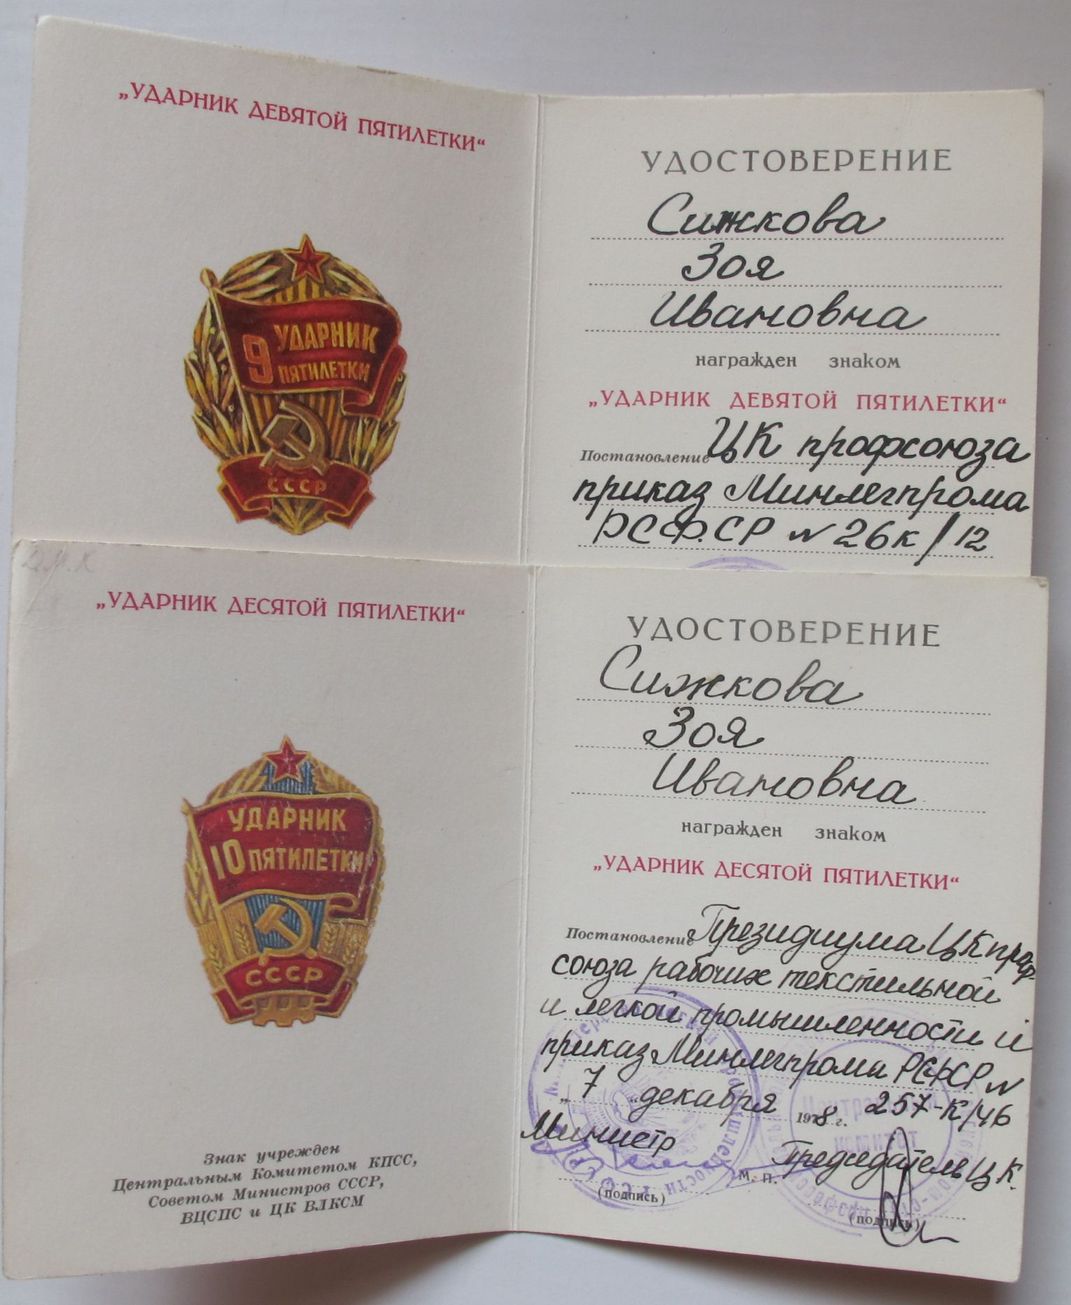 „УДАРНИК ДЕВЯТОЙ ПЯТИЛЕТКИ“
9 УДАРНИК
ПЯТИЛЕТКИ
СССР
УДОСТОВЕРЕНИЕ
Сижкова
Зоя
Ивановна
награжден знаком
„УДАРНИК ДЕВЯТОЙ ПЯТИЛЕТКИ“
Постановление ЦК профсоюза
приказ Минлегпрома
РСФСР N 26к/12
„УДАРНИК ДЕСЯТОЙ ПЯТИЛЕТКИ“
УДАРНИК
10 ПЯТИЛЕТКИ
СССР
Знак учрежден
Центральным Комитетом КПСС,
Советом Министров СССР,
ВЦСПС и ЦК ВЛКСМ
УДОСТОВЕРЕНИЕ
Сижкова
Зоя
Ивановна
награжден знаком
„УДАРНИК ДЕСЯТОЙ ПЯТИЛЕТКИ“
Постановление Президиума ЦК проф
союза рабочих текстильной
и легкой промышленности и
приказ Минлегпрома РСФСР N
„7 “ декабря 1978 г. 257-К/46
Министр Председатель ЦК.
М. П.
(подпись) (подпись)
Центральный
комитет